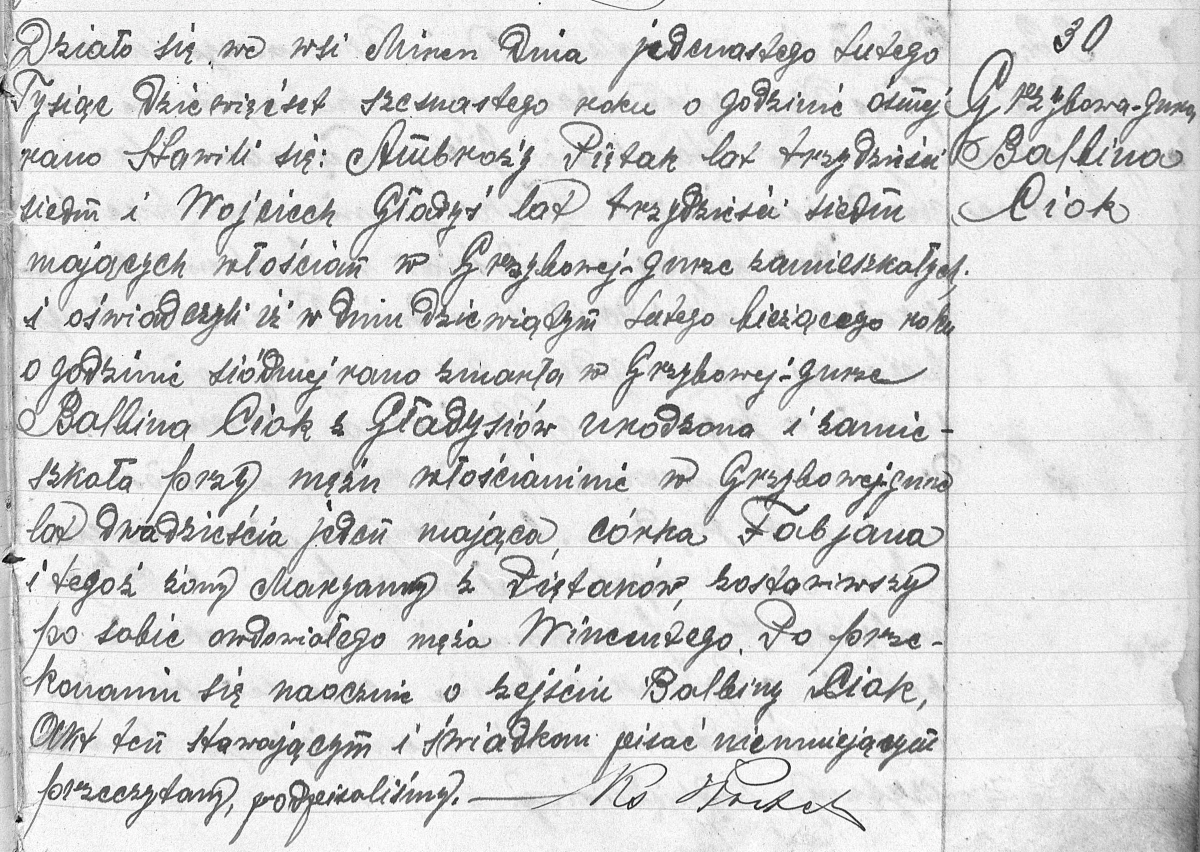 Działo się we wsi Miren dnia jedenastego Lutego
Tysiąc dziewięćset szesnastego roku o godzinie ósmej
rano Stawili się: Ambroży Piętak lat trzydzieści
siedm i Wojciech Gładyś lat trzydzieści siedm
mających włościan w Grzybowej-gurze zamieszkałych.
i oświadczyli iż w dniu dziewiątym Lutego bieżącego roku
o godzinie siódmej rano zmarła w Grzybowej-gurze
Balbina Ciok z Gładysiów urodzona i zamie-
szkała przy mężu włościaninie w Grzybowej-gurze
lat dwadzieścia jeden mająca, córka Fabjana
i tegoż żony Maryanny z Piętaków, zostawiwszy
po sobie owdowiałego męża Wincentego. Po prze-
konaniu się naocznie o zejściu Balbiny Ciok,
Akt ten stawającym i świadkom pisać nieumiejącym
przeczytany, podpisaliśmy. Ks
30
Grzybowa-gura
Balbina
Ciok